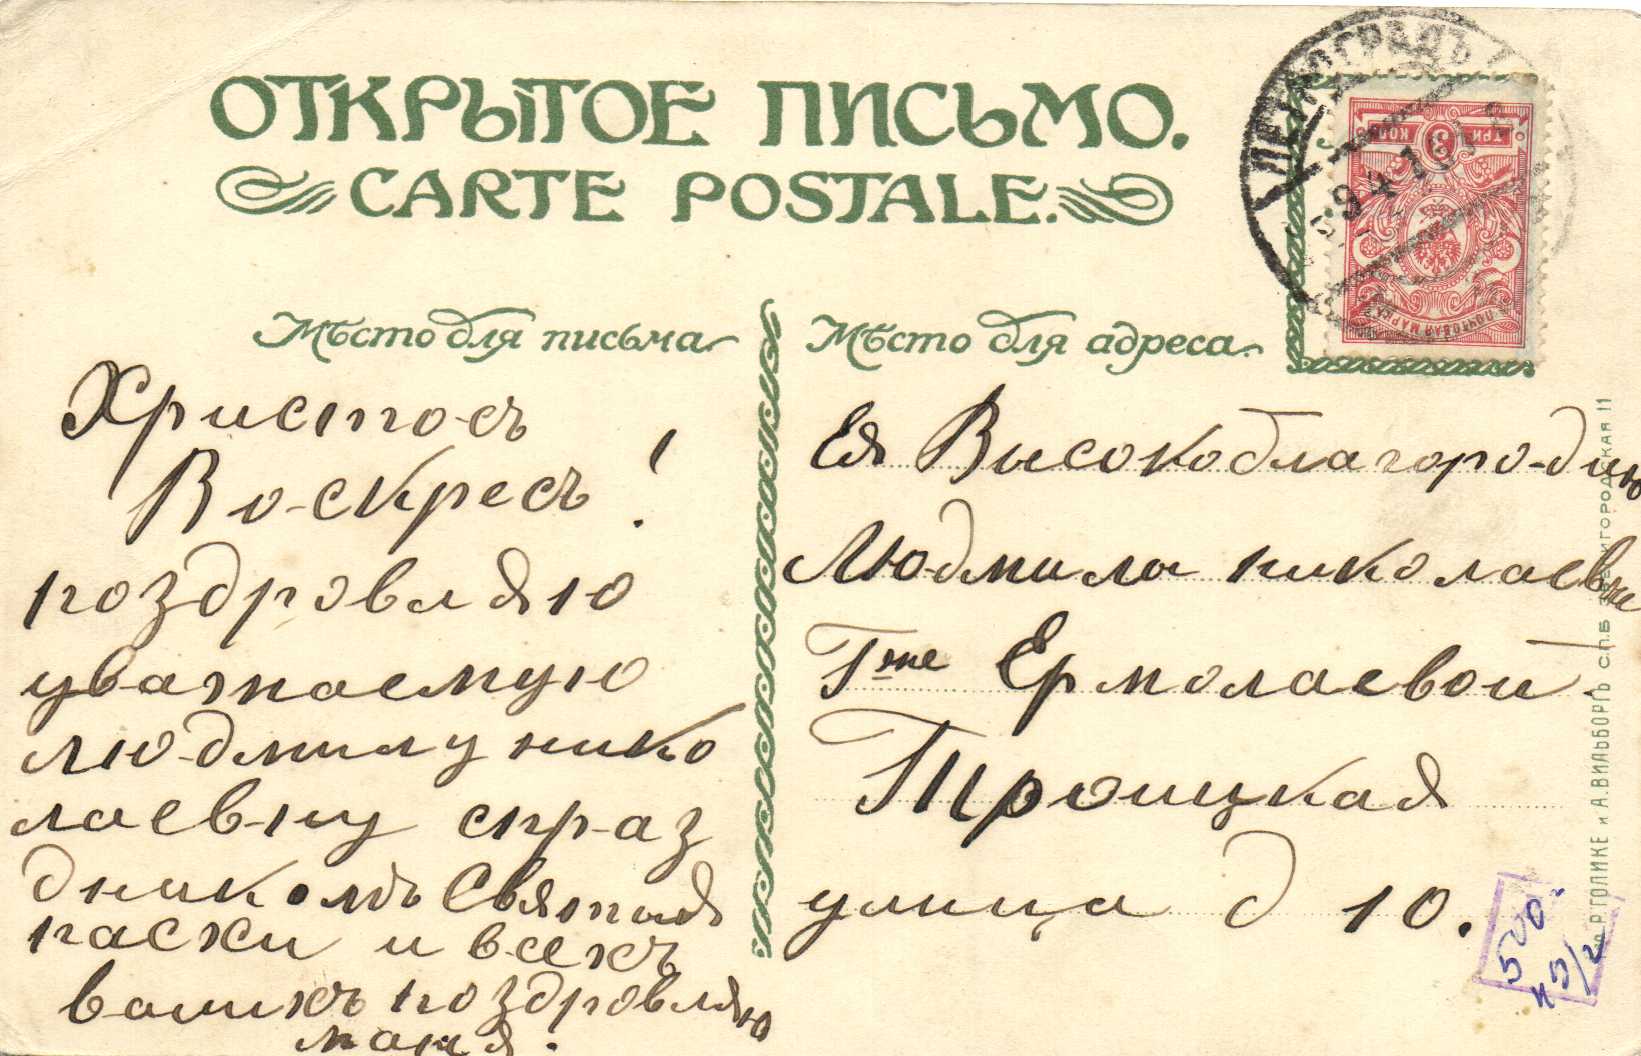 ОТКРЫТОЕ ПИСЬМО.
CARTE POSTALE.
Мѣсто для письма
Христосъ
Воскресъ!
поздровляю
уважаемую
людмилу нико
лаевну спраз
дникомъ Святой
пасхи и всехъ
вашихъ поздровляю
маня.
Мѣсто для адреса.
Ея Высокоблагородию
Людмила николаевне
Гже Ермолаевой.
Троицкая
улица д 10.
ПЕТРОГРАДЪ
9 4 16
ТРИ 3 КОП
ПОЧТОВАЯ МАРКА
Р. ГОЛИКЕ и А. ВИЛЬБОРГЪ С.П.Б. ЗВЕНИГОРОДСКАЯ 11
500